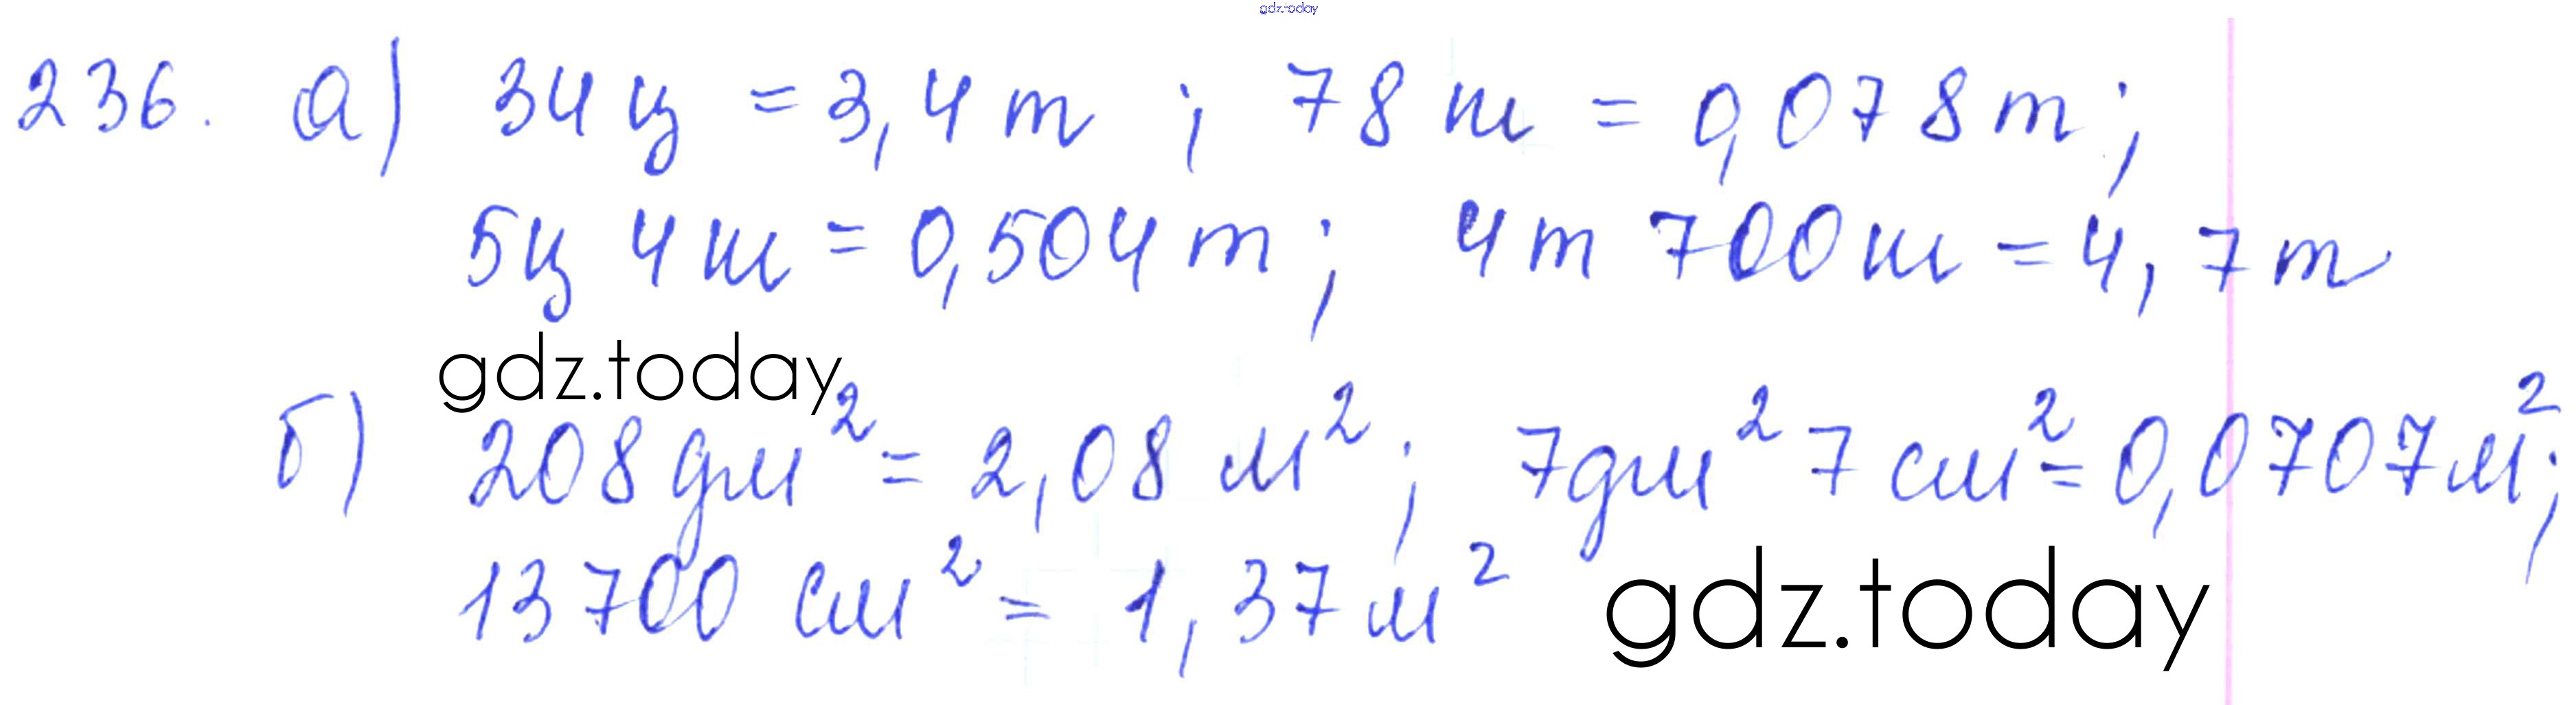 gdz.today
236. а) 34 ц = 3,4 т ; 78 ш = 0,078 т ;
5ц 4 ш = 0,504 т ; 4т 700 ш = 4,7 т
gdz.today
б) 208 дм² = 2,08 м² ; 7дм² 7 см² = 0,0707 м² ;
13700 см² = 1,37 м²
gdz.today